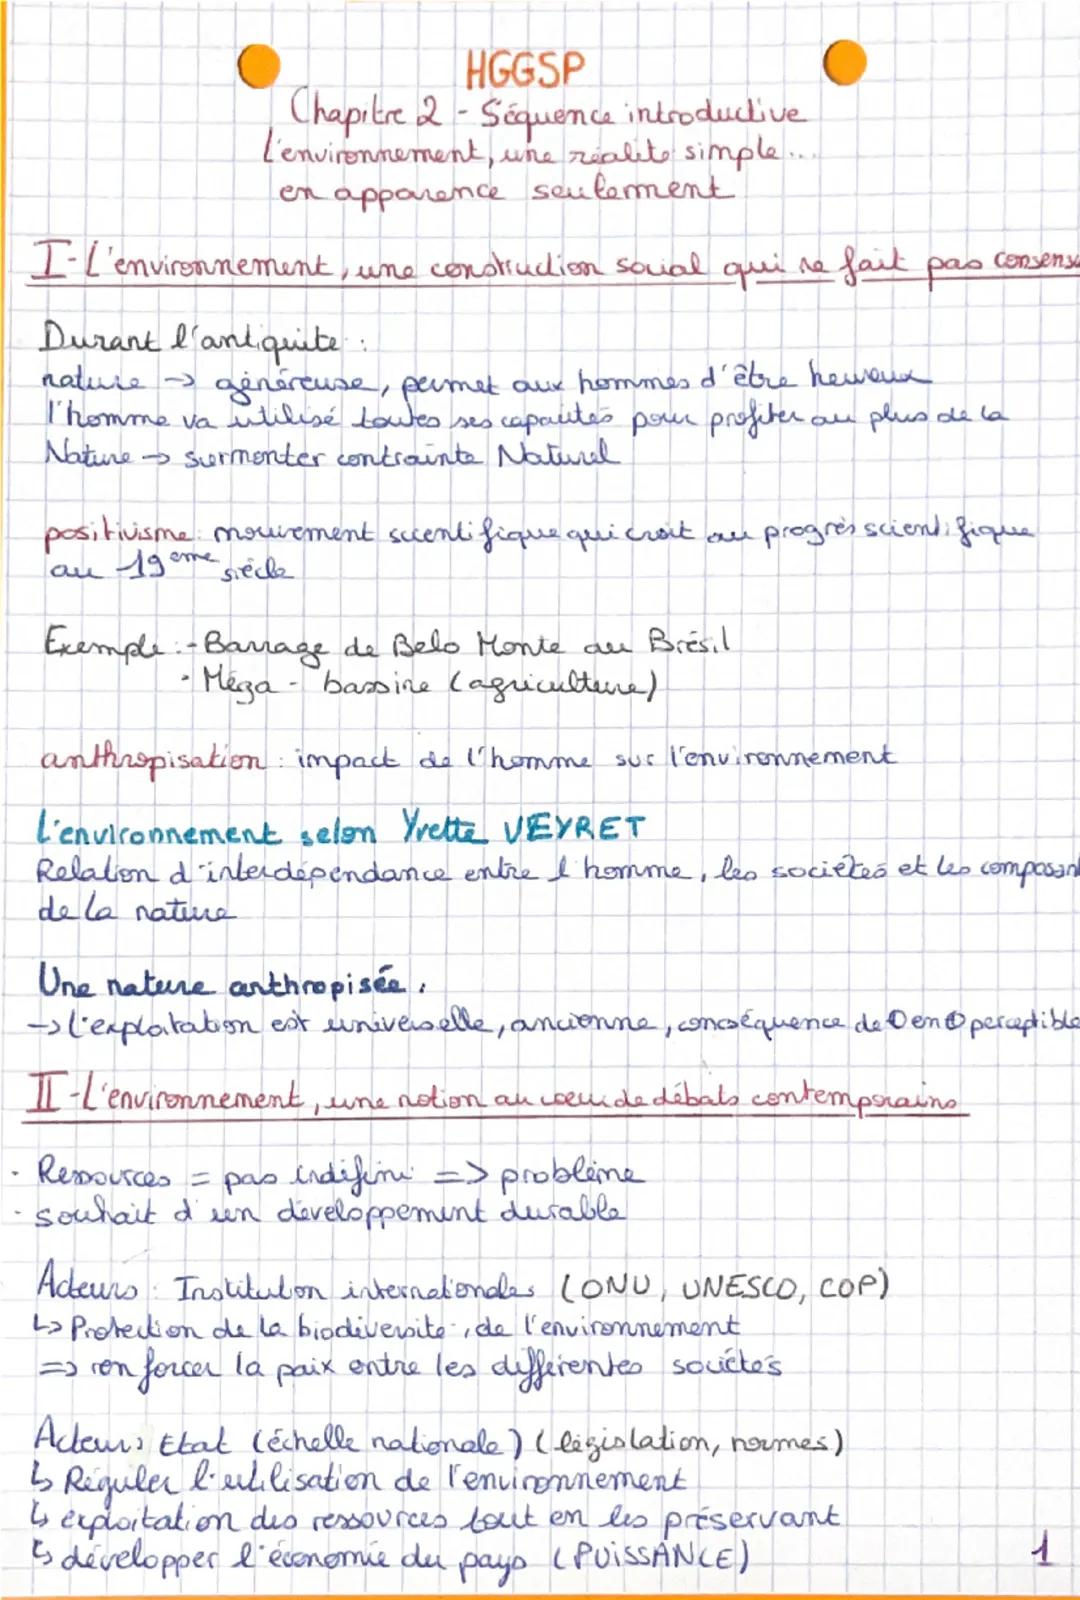 HGGSP
Chapitre 2 - Séquence introductive
L'environnement, une réalité simple...
en apparence seulement
I-L'environnement, une construction social qui ne fait pas consensu
Durant l'antiquité :
nature → généreuse, permet aux hommes d'être heureux
l'homme va utilisé toutes ses capacités pour profiter au plus de la
Nature → surmonter contrainte Naturel
positivisme : mouvement scientifique qui croit au progrès scientifique
au 19eme siècle
Exemple : - Barrage de Belo Monte au Brésil
- Méga - bassine (agriculture)
anthropisation : impact de l'homme sur l'environnement
L'environnement selon Yvette VEYRET
Relation d'interdépendance entre l'homme, les sociétés et les composant
de la nature
Une nature anthropisée :
→ L'exploitation est universelle, ancienne, conséquence de ⊕ en ⊕ perceptible
II-L'environnement, une notion au cœur de débats contemporains
· Ressources = pas indéfini => problème
· souhait d'un développement durable
Acteurs : Institution internationales (ONU, UNESCO, COP)
↳ Protection de la biodiversité, de l'environnement
=> renforcer la paix entre les différentes sociétés
Acteurs Etat (échelle nationale) (législation, normes)
↳ Réguler l'utilisation de l'environnement
↳ exploitation des ressources tout en les préservant
↳ développer l'économie du pays (PUISSANCE)
1